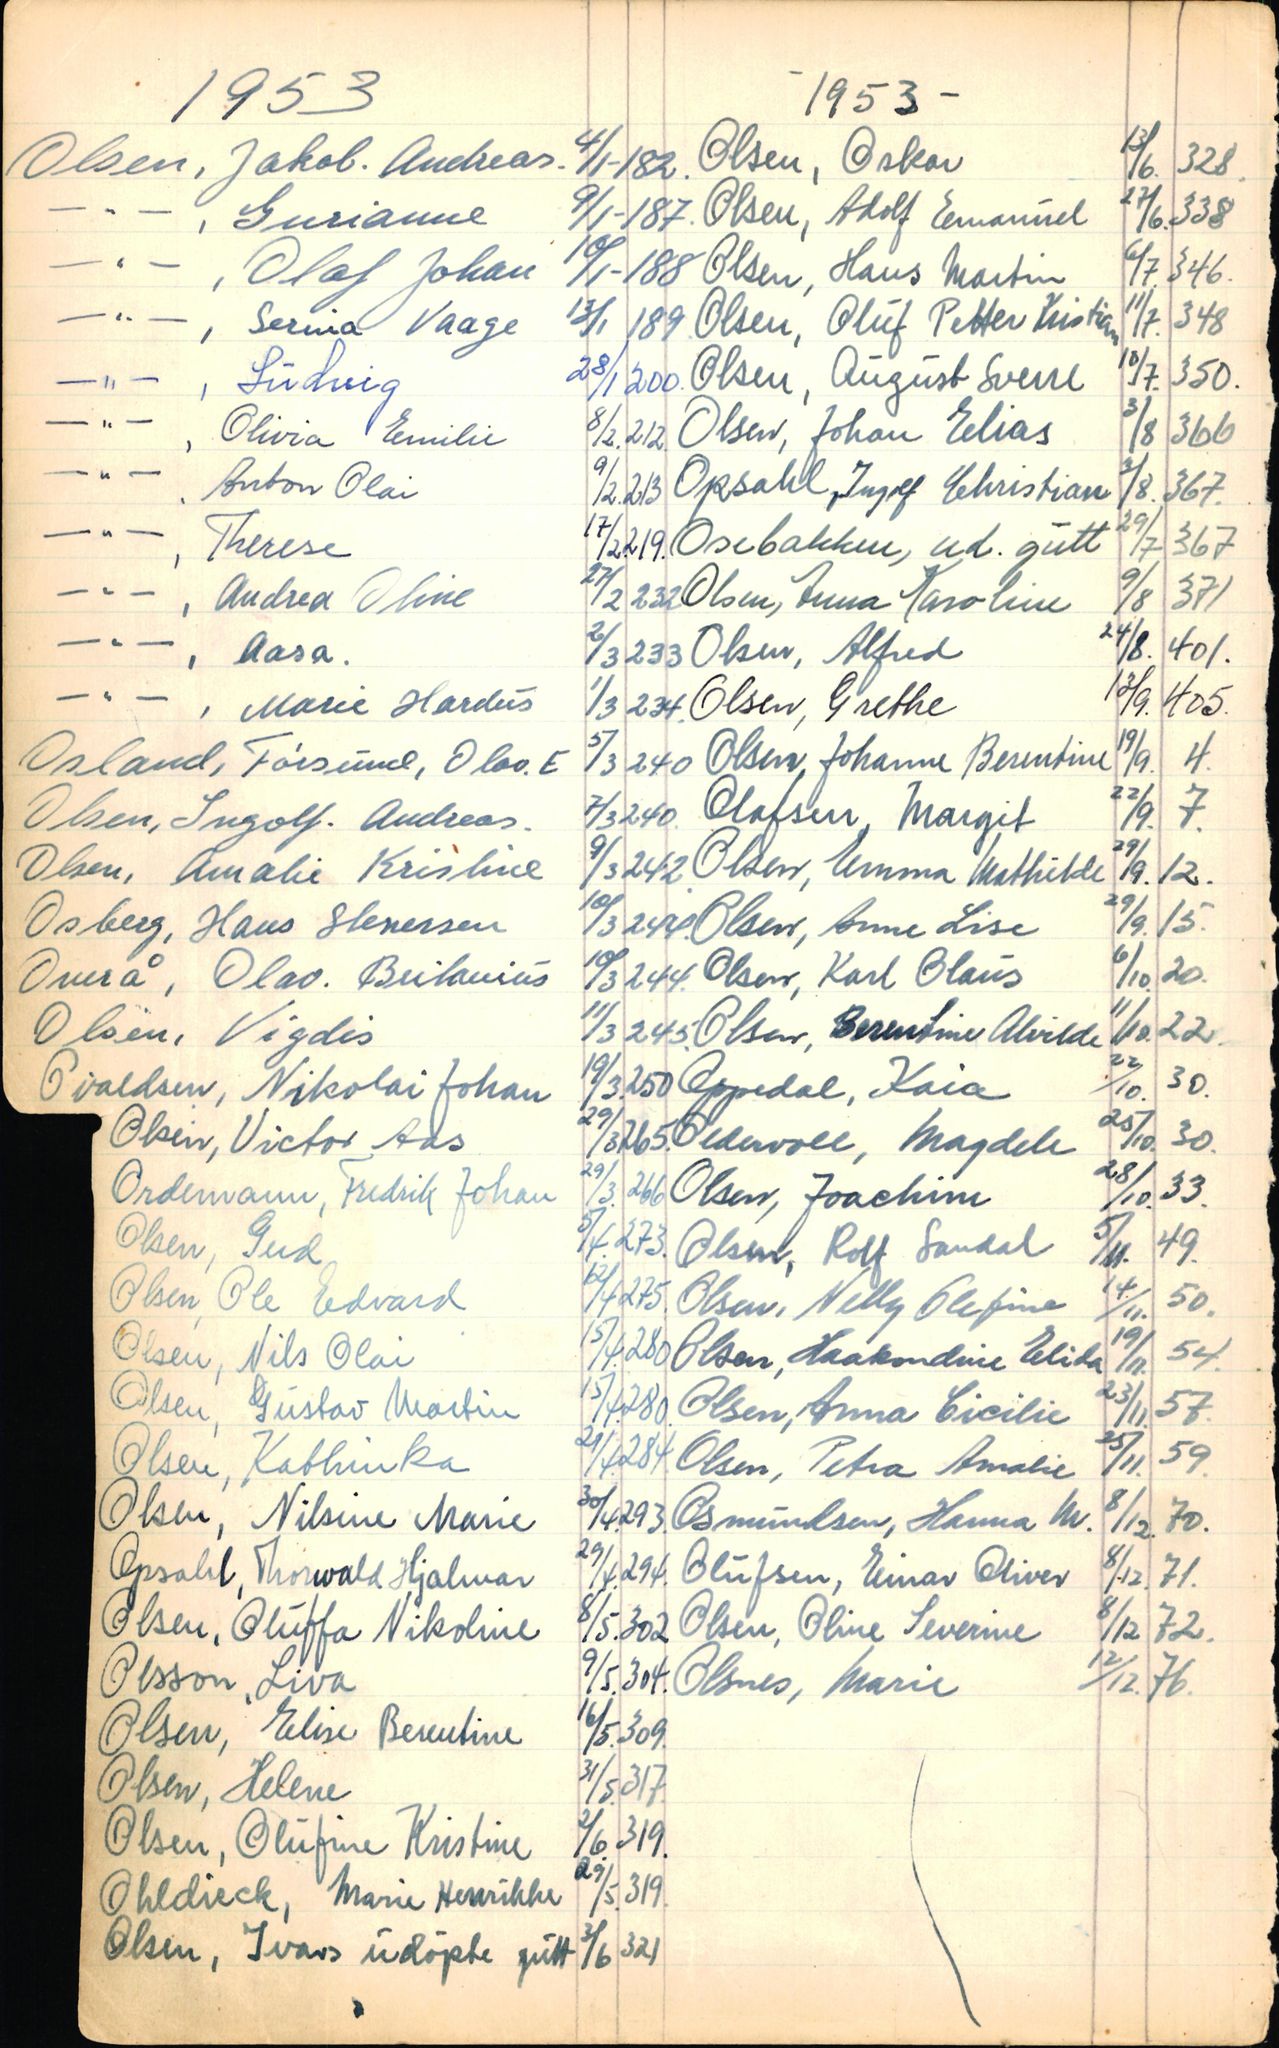 1953
Olsen, Jakob. Andreas. 4/1-182.
—"—, Gurianne 9/1-187.
—"—, Olaf Johan 10/1-188
—"—, Serina Vaage 13/1 189.
—"—, Ludvig 28/1 200.
—"—, Olivia Emilie 8/2. 212.
—"—, Anton Olai 9/2. 213
—"—, Therese 17/2. 219.
—"—, Andrea Oline 27/2 232
—"—, Aasa. 2/3 233
—"—, Marie Hardus 1/3 234.
Osland, Forsund, Olav. E 5/3 240
Olsen, Ingolf. Andreas. 7/3 240.
Olsen, Amalie Kristine 9/3 242
Osberg, Hans Stenersen 10/3 244.
Overå, Olav. 10/3 244.
Olsen, Vigdis 11/3 245.
Oivaldsen, Nikolai Johan 19/3. 250
Olsen, Victor Aas 29/3 265.
Ordemann, Fredrik Johan 29/3. 266
Olsen, Gerd 5/4. 273.
Olsen, Ole Edvard 12/4 275.
Olsen, Nils Olai 15/4. 280
Olsen, Gustav Martin 15/4. 280.
Olsen, Kathinka 21/4. 284
Olsen, Nilsine Marie 30/4. 293.
Opsahl, Thorwald Hjalmar 29/4. 294.
Olsen, Oluffa Nikoline 8/5. 302
Olsson, Liva 9/5. 304.
Olsen, Elise Berentine 16/5. 309.
Olsen, Helene 31/5. 317.
Olsen, Olufine Kristine 2/6. 319.
Ohldieck, Marie Henrikke 29/5. 319.
Olsen, Ivars udöpte gutt 3/6 321
-1953-
Olsen, Oskar 13/6. 328.
Olsen, Adolf Emanuel 27/6. 338
Olsen, Hans Martin 6/7. 346.
Olsen, Oluf Petter Kristian 11/7. 348
Olsen, August Sverre 10/7. 350.
Olsen, Johan Elias 3/8 366
Opsahl, Ingolf Christian 3/8. 367.
Osebakken, ud. gutt 29/7 367
Olsen, Anna Karoline 9/8 371
Olsen, Alfred 24/8. 401.
Olsen, Grethe 13/9. 405.
Olsen, Johanne Berentine 19/9. 4.
Olafsen, Margit 22/9. 7.
Olsen, Emma Mathilde 29/9. 12.
Olsen, Anne Lise 29/9. 15.
Olsen, Karl Olaus 6/10 20.
Olsen, Berentine Alvilde 11/10. 22.
Oppedal, Kaia 22/10. 30.
Oldervoll, Magdele 25/10. 30.
Olsen, Joachim 28/10. 33.
Olsen, Rolf Sandal 5/11. 49.
Olsen, Nelly Olefine 14/11. 50.
Olsen, Haakondine Elida 19/11. 54.
Olsen, Anna Cicilie 23/11. 57.
Olsen, Petra Amalie 25/11. 59.
Osmundsen, Hanna M. 8/12. 70.
Olufsen, Einar Oliver 8/12. 71.
Olsen, Oline Severine 8/12 72.
Olsnes, Marie 12/12. 76.